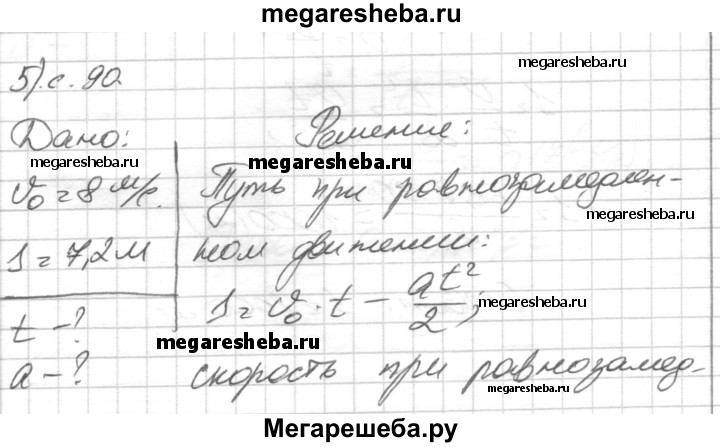 megaresheba.ru
megaresheba.ru
5). с. 90.
Дано:
Решение:
megaresheba.ru
megaresheba.ru
v₀ = 8 м/с.
Путь при равнозамедлен-
megaresheba.ru
s = 7,2 м
ном движении:
s = v₀ · t − at²/2;
megaresheba.ru
t - ?
megaresheba.ru
a - ?
скорость при равнозамед-
megaresheba.ru
Мегарешеба.ру